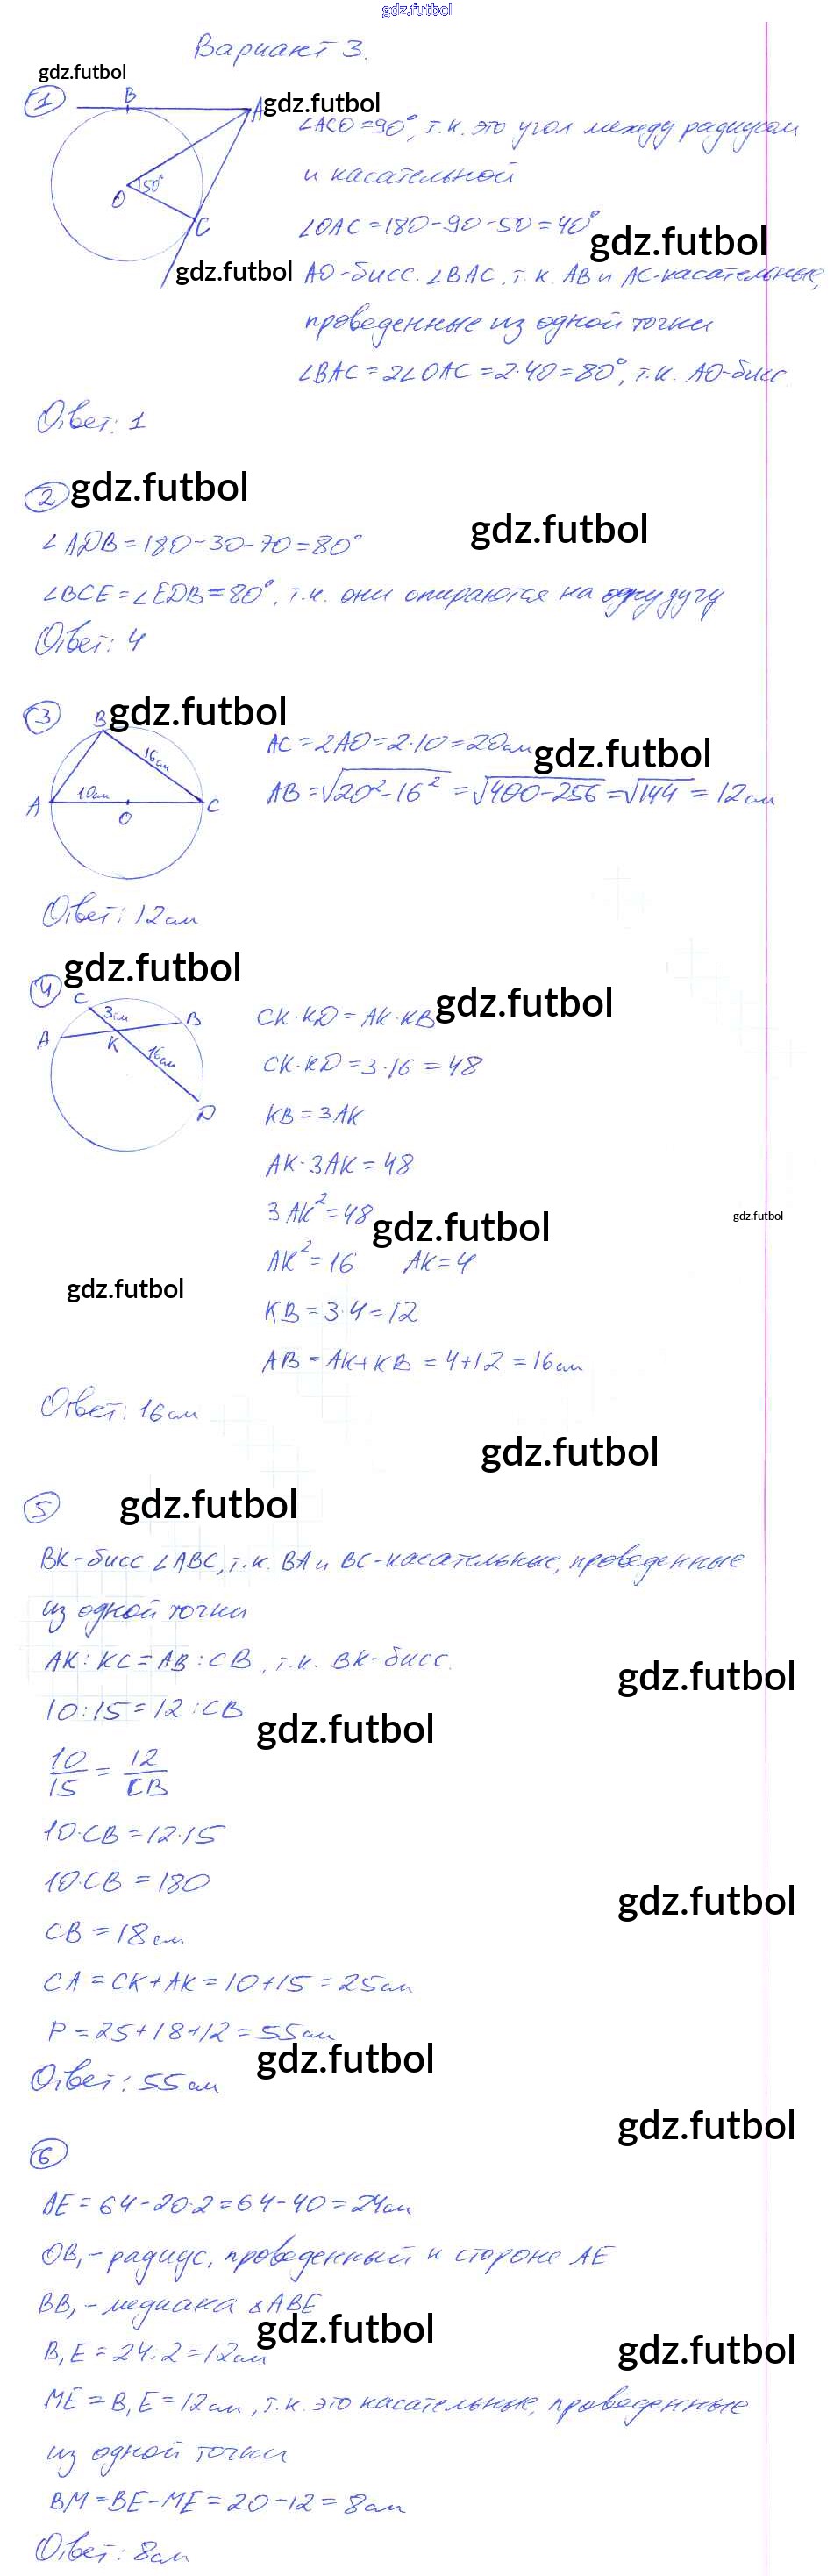 gdz.futbol
Вариант 3.
gdz.futbol
1
B
A
gdz.futbol
O
50°
C
gdz.futbol
∠ACO=90°, т.к. это угол между радиусом
и касательной
∠OAC=180-90-50=40°
gdz.futbol
AO-бисс. ∠BAC, т.к. AB и AC-касательные,
проведенные из одной точки
∠BAC=2∠OAC=2·40=80°, т.к. AO-бисс.
Ответ: 1
2 gdz.futbol
gdz.futbol
∠ADB=180-30-70=80°
∠BCE=∠EDB=80°, т.к. они опираются на одну дугу
Ответ: 4
3
B gdz.futbol
16см
A 10см O C
AC=2AO=2·10=20см gdz.futbol
AB=√20²-16²=√400-256=√144=12см
Ответ: 12см
gdz.futbol
4
C 3см B
A K 16см
D
CK·KD=AK·KB gdz.futbol
CK·KD=3·16=48
KB=3AK
AK·3AK=48
3AK²=48 gdz.futbol
gdz.futbol
AK²=16 AK=4
gdz.futbol
KB=3·4=12
AB=AK+KB=4+12=16см
Ответ: 16см
gdz.futbol
5 gdz.futbol
BK-бисс. ∠ABC, т.к. BA и BC-касательные, проведенные
из одной точки
AK:KC=AB:CB, т.к. BK-бисс.
gdz.futbol
10:15=12:CB
gdz.futbol
10/15=12/CB
10·CB=12·15
10·CB=180
gdz.futbol
CB=18см
CA=CK+AK=10+15=25см
P=25+18+12=55см
gdz.futbol
Ответ: 55см
gdz.futbol
6
AE=64-20·2=64-40=24см
OB₁-радиус, проведенный к стороне AE
BB₁-медиана ▵ABE
gdz.futbol
gdz.futbol
B₁E=24:2=12см
ME=B₁E=12см, т.к. это касательные, проведенные
из одной точки
BM=BE-ME=20-12=8см
Ответ: 8см